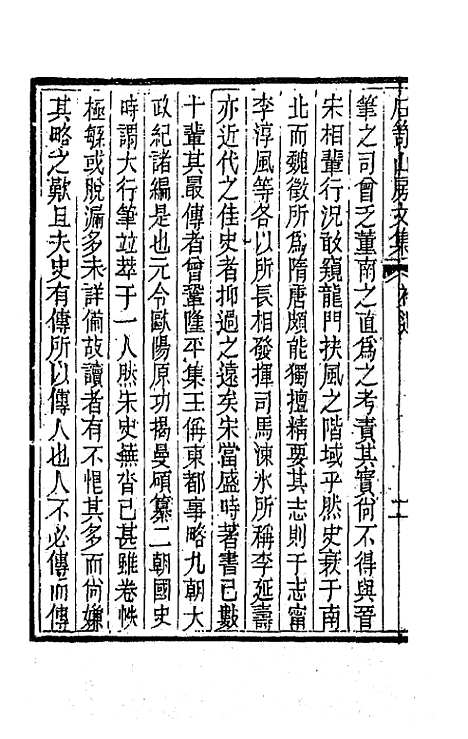 石笥山房文集 補遺
筆之司曾乏董南之直爲之考責其實尚不得與晉
宋相輩行況敢窺龍門扶風之階域乎然史衰于南
北而魏徵所爲隋唐頗能獨擅精要其志則于志甯
李淳風等各以所長相發揮司馬涑水所稱李延壽
亦近代之佳史者抑過之遠矣宋當盛時著書已數
十輩其最傳者曾鞏隆平集王偁東都事略九朝大
政紀諸編是也元令歐陽原功揭曼碩纂二朝國史
時謂大行筆竝萃于一人然朱史蕪沓已甚雖卷帙
極緐或脫漏多未詳僃故讀者有不悒其多而尚嫌
其略之歎且夫史有傳所以傳人也人不必傳而傳